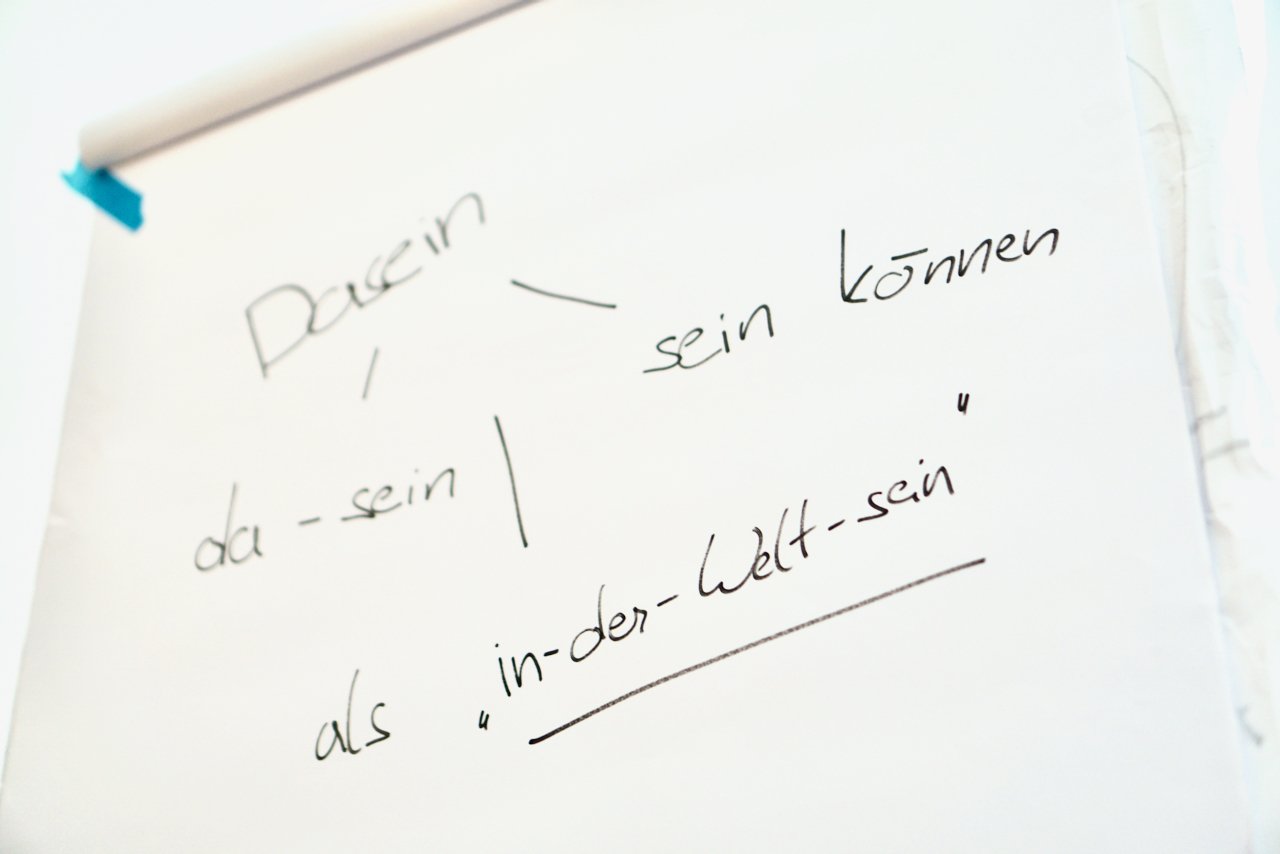 Dasein
sein können
da-sein
als „in-der-Welt-sein"